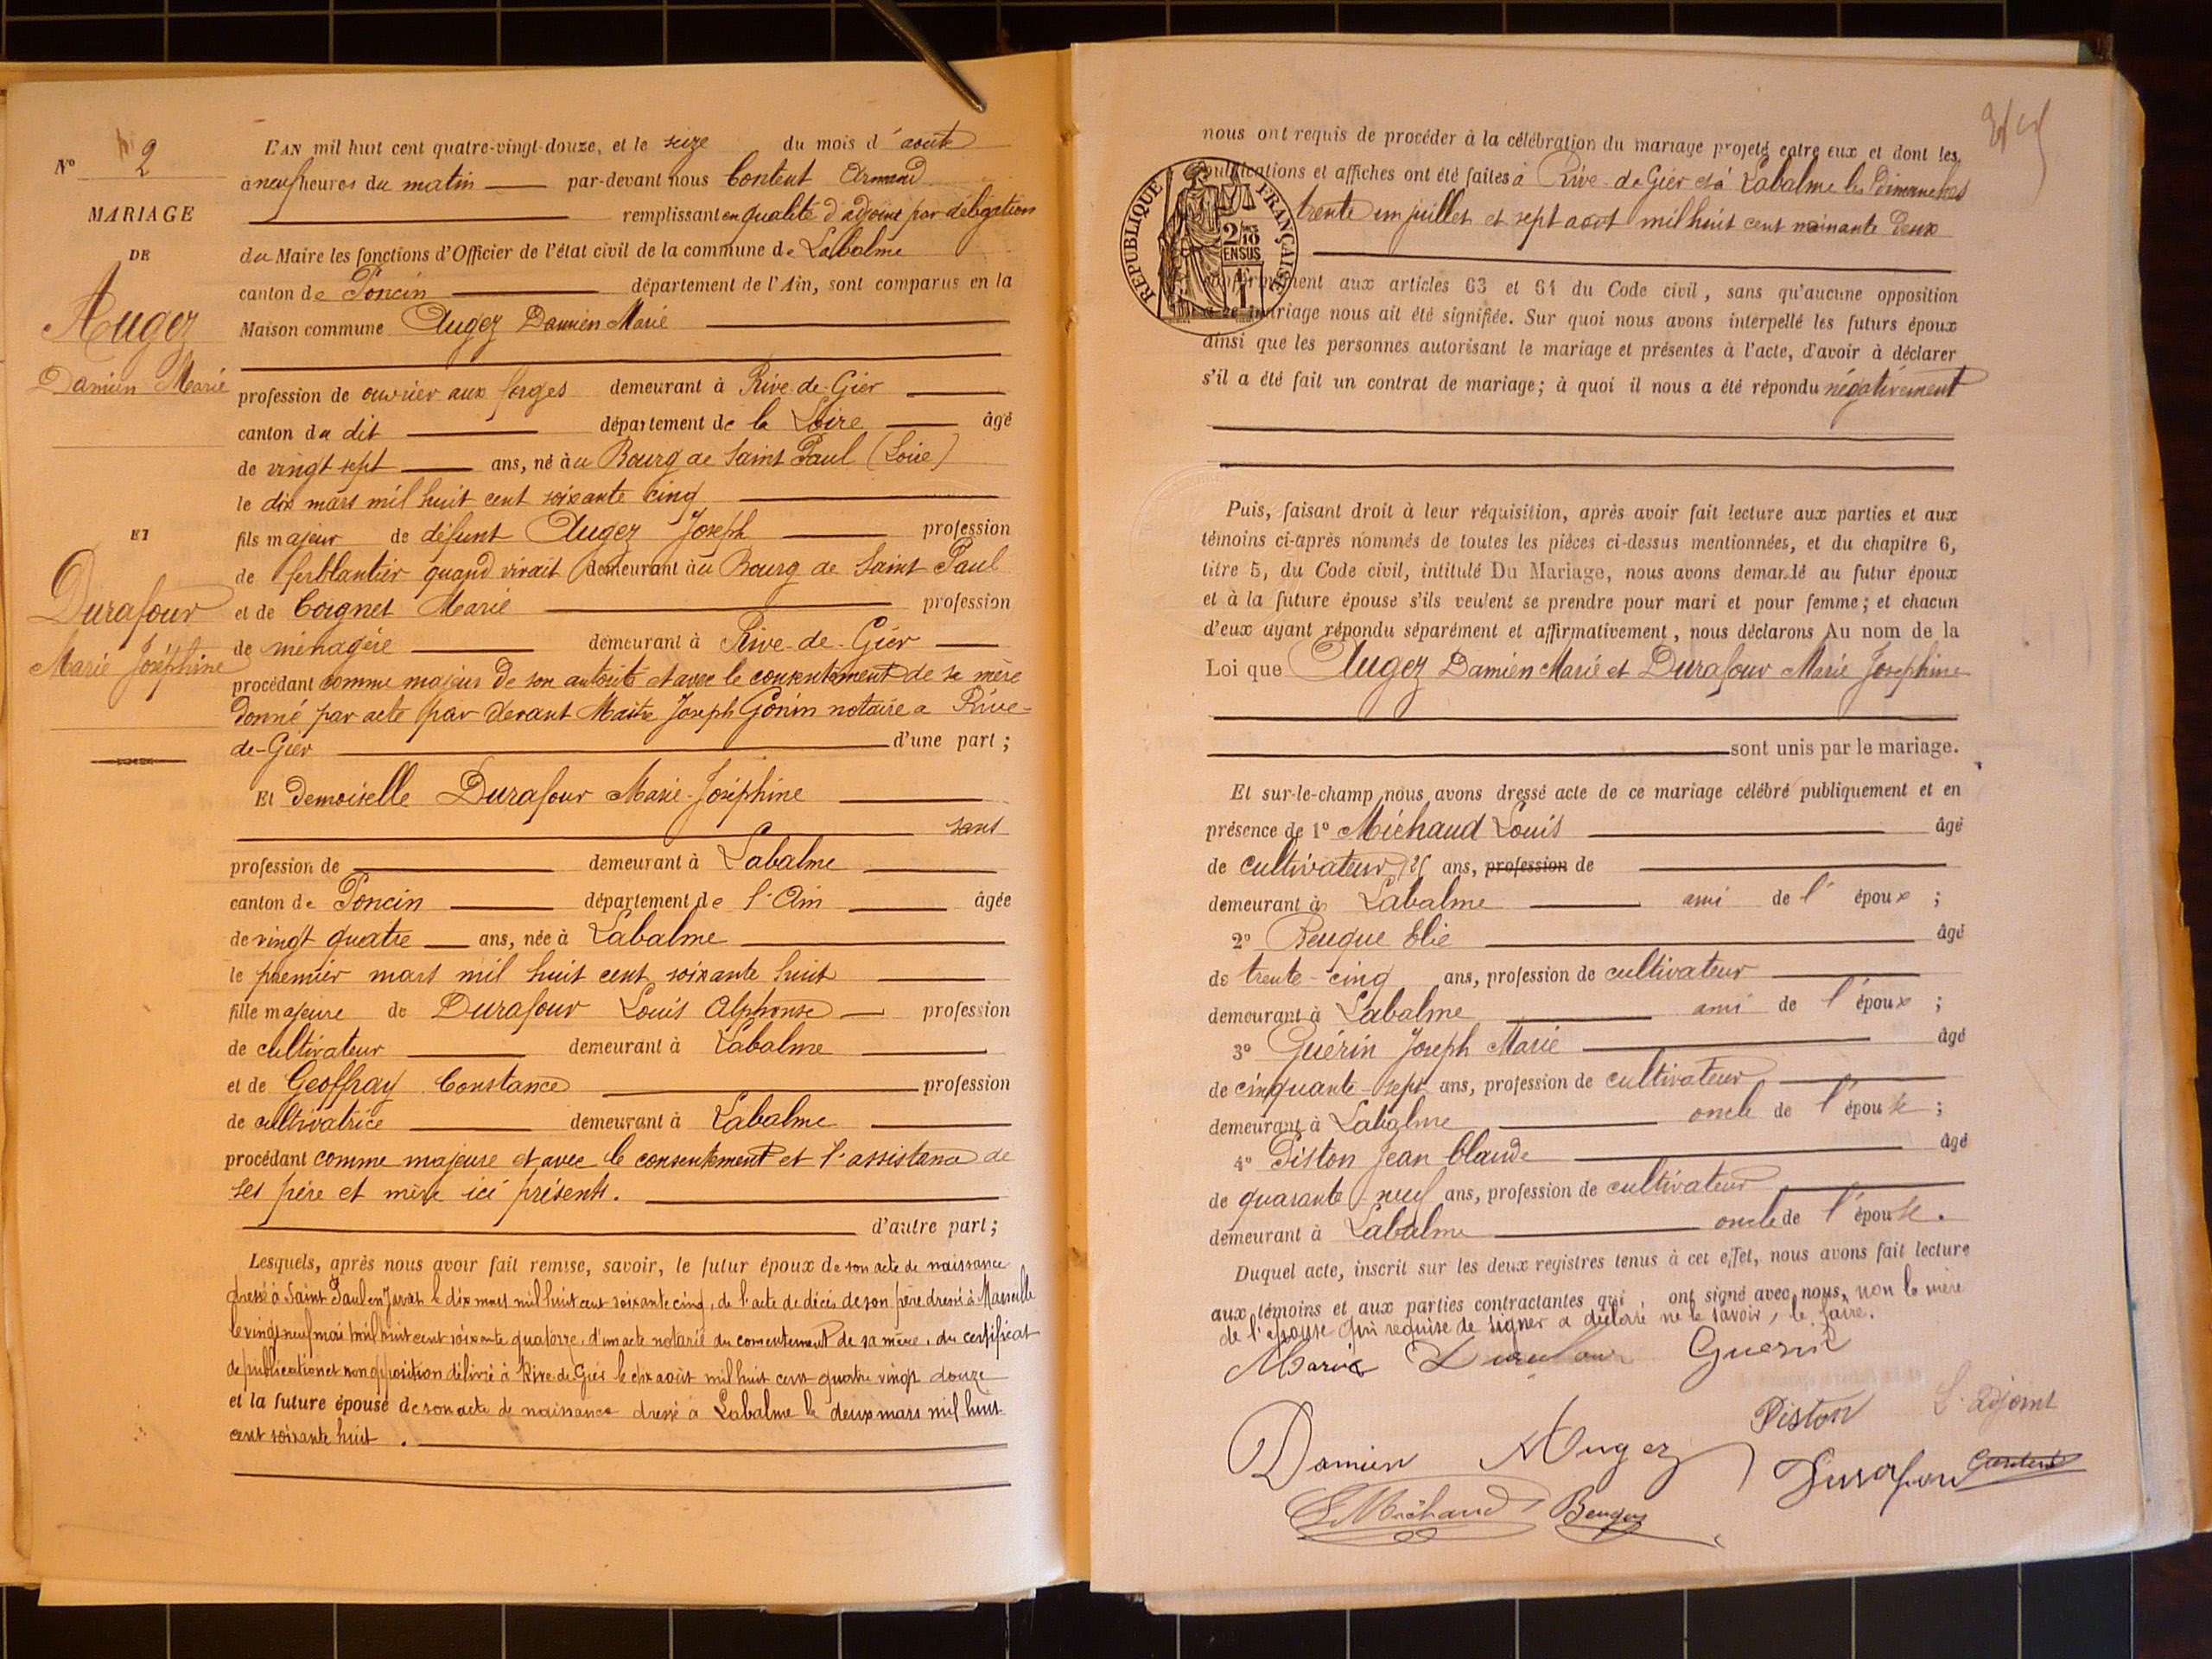 N° 2
MARIAGE
DE
Augez
Damien Marie
ET
Durafour
Marie Joséphine
L'AN mil huit cent quatre-vingt-douze, et le seize du mois d'août
à neuf heures du matin par-devant nous Content Armand
remplissant en qualité d'adjoint par délégation
du Maire les fonctions d'Officier de l'état civil de la commune de Labalme
canton de Poncin département de l'Ain, sont comparus en la
Maison commune Augez Damien Marie
profession de ouvrier aux forges demeurant à Rive-de-Gier
canton du dit département de la Loire âgé
de vingt sept ans, né à u Bourg de Saint Paul (Loire)
le dix mars mil huit cent soixante cinq
fils majeur de défunt Augez Joseph profession
de ferblantier quand vivait demeurant au Bourg de Saint Paul
et de Coignet Marie profession
de ménagère demeurant à Rive-de-Gier
procédant comme majeur de son autorité et avec le consentement de sa mère
donné par acte par devant Maître Joseph Gonin notaire a Rive-
de-Gier d'une part ;
Et demoiselle Durafour Marie-Joséphine
sans
profession de demeurant à Labalme
canton de Poncin département de l'Ain âgée
de vingt quatre ans, née à Labalme
le premier mars mil huit cent soixante huit
fille majeure de Durafour Louis Alphonse profession
de cultivateur demeurant à Labalme
et de Geoffray Constance profession
de cultivatrice demeurant à Labalme
procédant comme majeure et avec le consentement et l'assistance de
ses père et mère ici présents.
d'autre part ;
Lesquels, après nous avoir fait remise, savoir, le futur époux de son acte de naissance
dressé à Saint Paul en Jarret le dix mars mil huit cent soixante cinq, de l'acte de décès de son père dressé à Marseille
le vingt neuf mai mil huit cent soixante quatorze, d'un acte notarié du consentement de sa mère, du certificat
de publication et non opposition délivré à Rive-de-Gier le dix août mil huit cent quatre vingt douze
et la future épouse de son acte de naissance dressé à Labalme le deux mars mil huit
cent soixante huit.
nous ont requis de procéder à la célébration du mariage projeté entre eux et dont les
publications et affiches ont été faites à Rive-de-Gier et à Labalme les dimanches
trente un juillet et sept août mil huit cent noinante deux
RÉPUBLIQUE FRANÇAISE
2/10
EN SUS
1
conformément aux articles 63 et 64 du Code civil, sans qu'aucune opposition
à ce mariage nous ait été signifiée. Sur quoi nous avons interpellé les futurs époux
ainsi que les personnes autorisant le mariage et présentes à l'acte, d'avoir à déclarer
s'il a été fait un contrat de mariage ; à quoi il nous a été répondu négativement
Puis, faisant droit à leur réquisition, après avoir fait lecture aux parties et aux
témoins ci-après nommés de toutes les pièces ci-dessus mentionnées, et du chapitre 6,
titre 5, du Code civil, intitulé Du Mariage, nous avons demandé au futur époux
et à la future épouse s'ils veulent se prendre pour mari et pour femme ; et chacun
d'eux ayant répondu séparément et affirmativement, nous déclarons Au nom de la
Loi que Augez Damien Marie et Durafour Marie Josephine
sont unis par le mariage.
Et sur-le-champ nous avons dressé acte de ce mariage célébré publiquement et en
présence de 1° Michaud Louis âgé
de cultivateur ans, profession de
demeurant à Labalme ami de l'époux ;
2° Beugue Elie âgé
de trente-cinq ans, profession de cultivateur
demeurant à Labalme ami de l'époux ;
3° Guérin Joseph Marie âgé
de cinquante-sept ans, profession de cultivateur
demeurant à Labalme oncle de l'épouse ;
4° Piston Jean Claude âgé
de quarante-neuf ans, profession de cultivateur
demeurant à Labalme oncle de l'épouse.
Duquel acte, inscrit sur les deux registres tenus à cet effet, nous avons fait lecture
aux témoins et aux parties contractantes qui ont signé avec nous, non la mère
de l'épouse qui requise de signer a déclaré ne le savoir, le faire.
Marie Durafour Guerin
Piston L'adjoint
Damien Augez Durafour Content
L Michaud Beugue